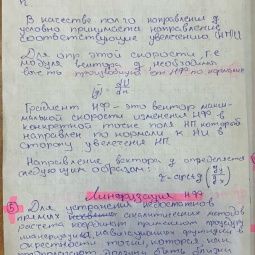 В качестве полож направления g
условно принимается направление
соответствующее увеличению (НП)
Для опр этой скорости, т.е
модуля вектора g необходимо
взять производную от НФ по нормали
|g| = dU/dn
Градиент НФ - это вектор макси-
мальной скорости изменения НФ в
конкретной точке поля НП который
направлен по нормали к НИ в
сторону увеличения НП.
Направление вектора g определяется
следующим образом:
τ = arctg (gy/gx)
Линеризация НФ
5 Для устранения недостатков
прямых аналитических методов
расчета координат применяют процедуру
линеризации навигационной функции в
окрестности точки, которая или